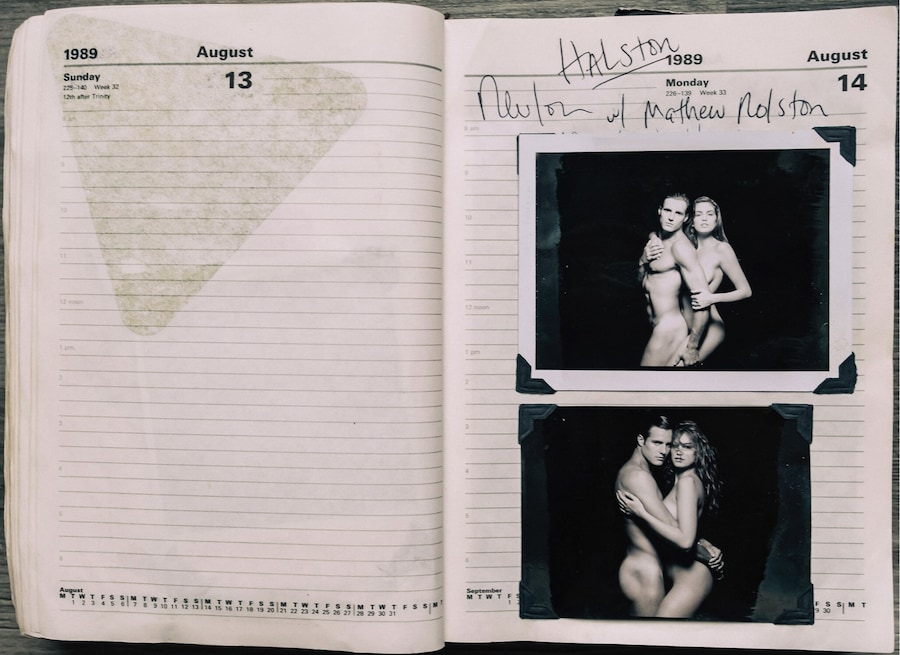 1989 August
Sunday 13
225–140 Week 32
12th after Trinity
10
11
12 noon
1 pm
2
3
4
5
August
M T W T F S S M T W T F S S M T W T F S S M T W T F S S M T W T F S S M
1 2 3 4 5 6 7 8 9 10 11 12 13 14 15 16 17 18 19 20 21 22 23 24 25 26 27 28 29 30 31
HALSTON
1989 August
Monday 14
226–139 Week 33
Revlon w/ Mathew Rolston
8 am
9
10
11
12 noon
1 pm
2
3
4
5
6
September
M T W T F S S M T
1 29 30